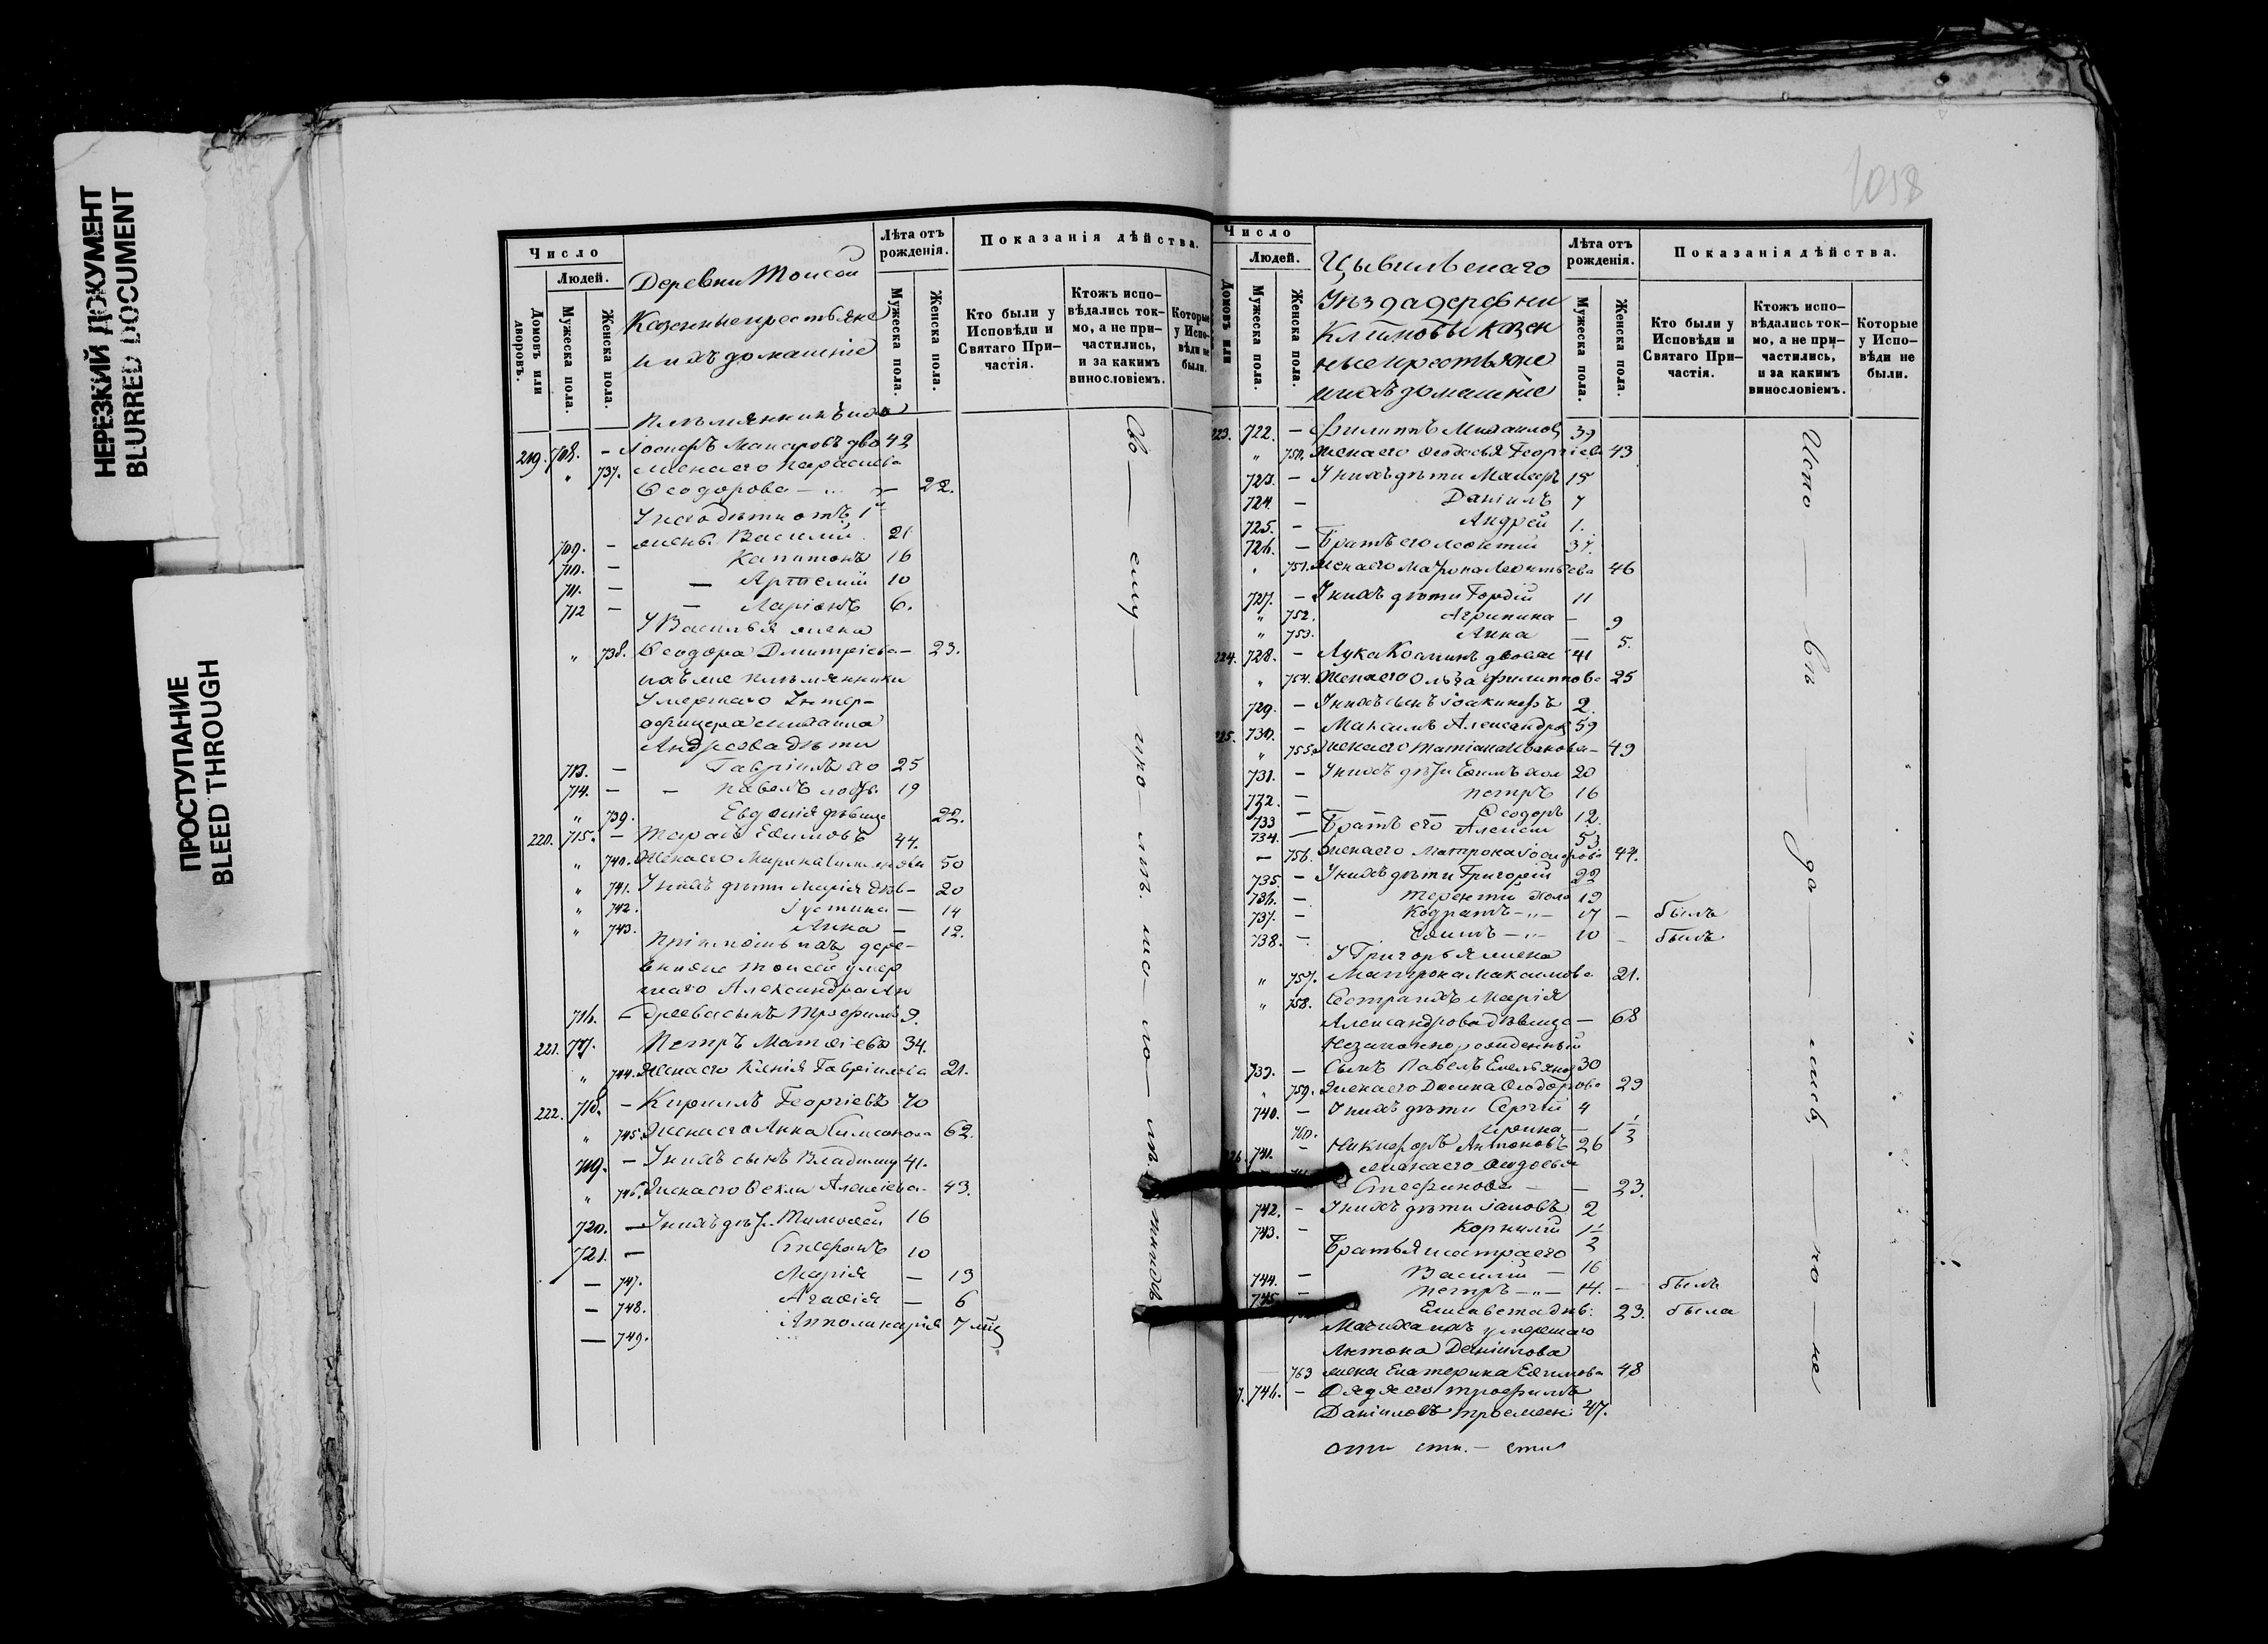 НЕРЕЗКИЙ ДОКУМЕНТ
BLURRED DOCUMENT
ПРОСТУПАНИЕ
BLEED THROUGH
Число
Людей.
Домовъ или дворовъ.
Мужеска пола.
Женска пола.
Деревни
Казенные крестьяне
и ихъ домашніе
Лѣта отъ рожденія.
Мужеска пола.
Женска пола.
Показанія дѣйства.
Кто были у Исповѣди и Святаго При-частія.
Ктожъ испо-вѣдались ток-мо, а не при-частились, и за какимъ винословіемъ.
Которые у Испо-вѣди не были.
Племянникъ ихъ
219. 708. — Іосифъ Макаровъ 42
" 737. жена его Параскева
Ѳеодорова — 22.
У него дѣти отъ 1й
709. — жены Василій 21
710. — Капитонъ 16
711. — Артемій 10
712 — Ларіонъ 6.
У Василья жена
" 738. Ѳеодора Дмитріева — 23.
ихъ же племянники
Умершаго Унтер-
офицера Михаила
Андреева дѣти
713. — Гавріилъ хо 25
714. — Павелъ 19
" 739. Евдокія дѣвица 22.
220. 715. — Тарасъ Ефимовъ 44.
" 740. Жена его Марина 50
" 741. У нихъ дѣти Марія дѣв — 20
" 742. Іустина — 14
" 743. Анна — 12.
дере-
умер
шаго Александра Ан
716. — дреева сынъ Трофимъ 9.
221. 717. Петръ Матѳіевъ 34.
" 744. Жена его Ксенія Гавріилова 21.
222. 718. — Кириллъ Георгіевъ 70
" 745. Жена его Анна Симеонова 62.
719. — У нихъ сынъ Владимиръ 41.
" 746. Жена его Ѳекла Алексіева 43.
720. — У нихъ дѣти Тимоѳей 16
721. — Стефанъ 10
— 747. Марія — 13
— 748. Агаѳія — 6
— 749. Апполинарія 7 мѣс
1058
Число
Людей.
Домовъ или
Мужеска пола.
Женска пола.
Цывильскаго
Уѣзда деревни
казен
ные крестьяне
и ихъ домашніе
Лѣта отъ рожденія.
Мужеска пола.
Женска пола.
Показанія дѣйства.
Кто были у Исповѣди и Святаго При-частія.
Ктожъ испо-вѣдались ток-мо, а не при-частились, и за какимъ винословіемъ.
Которые у Испо-вѣди не были.
223. 722. — Филиппъ Михаиловъ 39
" 750. Жена его Ѳеодосья Георгіева 43
723. — У нихъ дѣти 15
724. — Даніилъ 7
725. — Андрей 1.
726. — Братъ его Леонтій 37.
751. Жена его Матрона Леонтьева 46
727. — У нихъ дѣти Гордій 11
" 752. Агрипина — 9
" 753. Анна — 5.
224. 728. — Лука Козминъ 41
" 754. Жена его Ольга Филиппова 25
729. — У нихъ сынъ Іоакинфъ 2.
225. 730. — Максимъ Александровъ 59
" 755. Жена его Татіана Иванова — 49
731. — У нихъ дѣти Ефимъ хол 20
732. — Петръ 16
733 — Ѳеодоръ 12.
734. — Братъ его Алексій 53
— 756. Жена его Матрона Іосифова 44.
735. — У нихъ дѣти Григорій 22
736. — Терентій холо 19
737. — Кодратъ — " — 17 — былъ
738. — Ефимъ — " — 10 — былъ
У Григорья жена
" 757. Матрона Максимова 21.
" 758. Сестра ихъ Марія
Александрова дѣвица — 68
Незаконнорожденный
739. — Сынъ Павелъ Емельяновъ 30
" 759. Жена его Домна Ѳеодорова 29
740. — У нихъ дѣти Сергій 4
760. Ирина — 1 1/2
226. 741. — Никифоръ Антоновъ 26
жена его Ѳедосья
Стефанова — 23.
742. — У нихъ дѣти Іаковъ 2
743. — Корнилій 1 1/2
Братья и сестра его
744. — Василій — 16
745 — Петръ — " — 14. — былъ
Елисавета дѣв: 23. была
Мачиха ихъ умершаго
Антона Даніилова
763 жена Екатерина Ефимова 48
746. — Дядя его Трофимъ
Даніиловъ 47.